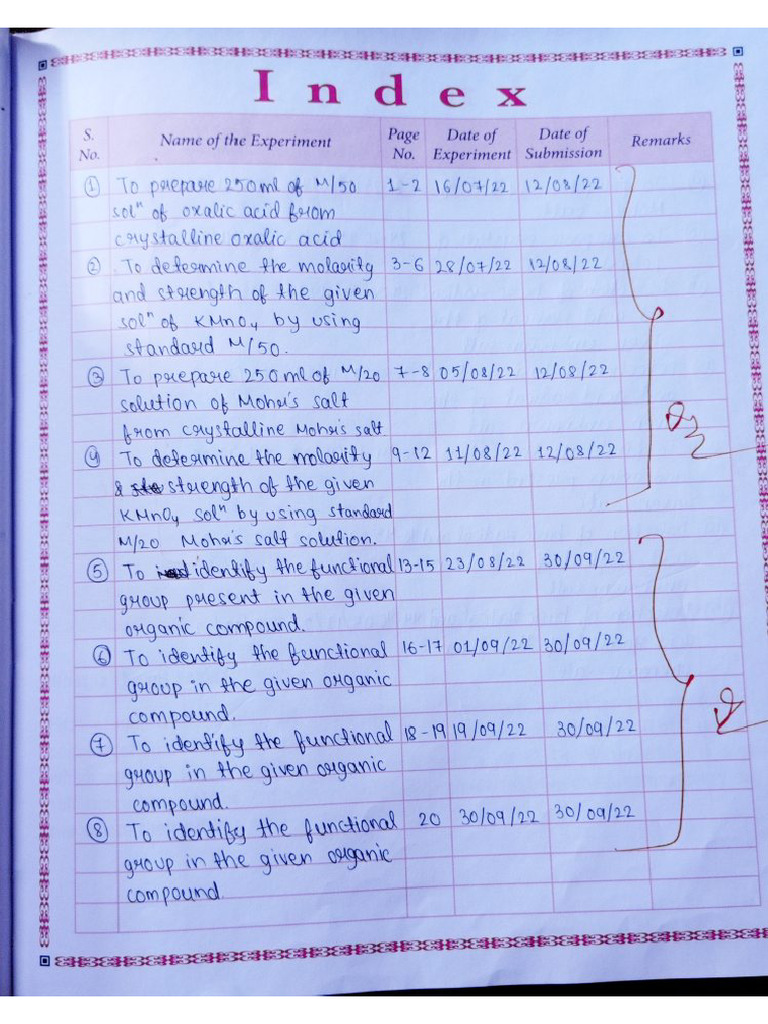 Index
S. No. Name of the Experiment Page No. Date of Experiment Date of Submission Remarks
① To prepare 250ml of M/50 1-2 16/07/22 12/08/22
solⁿ of oxalic acid from
crystalline oxalic acid
② To determine the molarity 3-6 28/07/22 12/08/22
and strength of the given
solⁿ of KMnO₄ by using
standard M/50.
③ To prepare 250ml of M/20 7-8 05/08/22 12/08/22
solution of Mohr's salt
from crystalline Mohr's salt
④ To determine the molarity 9-12 11/08/22 12/08/22
& strength of the given
KMnO₄ solⁿ by using standard
M/20 Mohr's salt solution.
⑤ To identify the functional 13-15 23/08/22 30/09/22
group present in the given
organic compound.
⑥ To identify the functional 16-17 01/09/22 30/09/22
group in the given organic
compound.
⑦ To identify the functional 18-19 19/09/22 30/09/22
group in the given organic
compound.
⑧ To identify the functional 20 30/09/22 30/09/22
group in the given organic
compound.